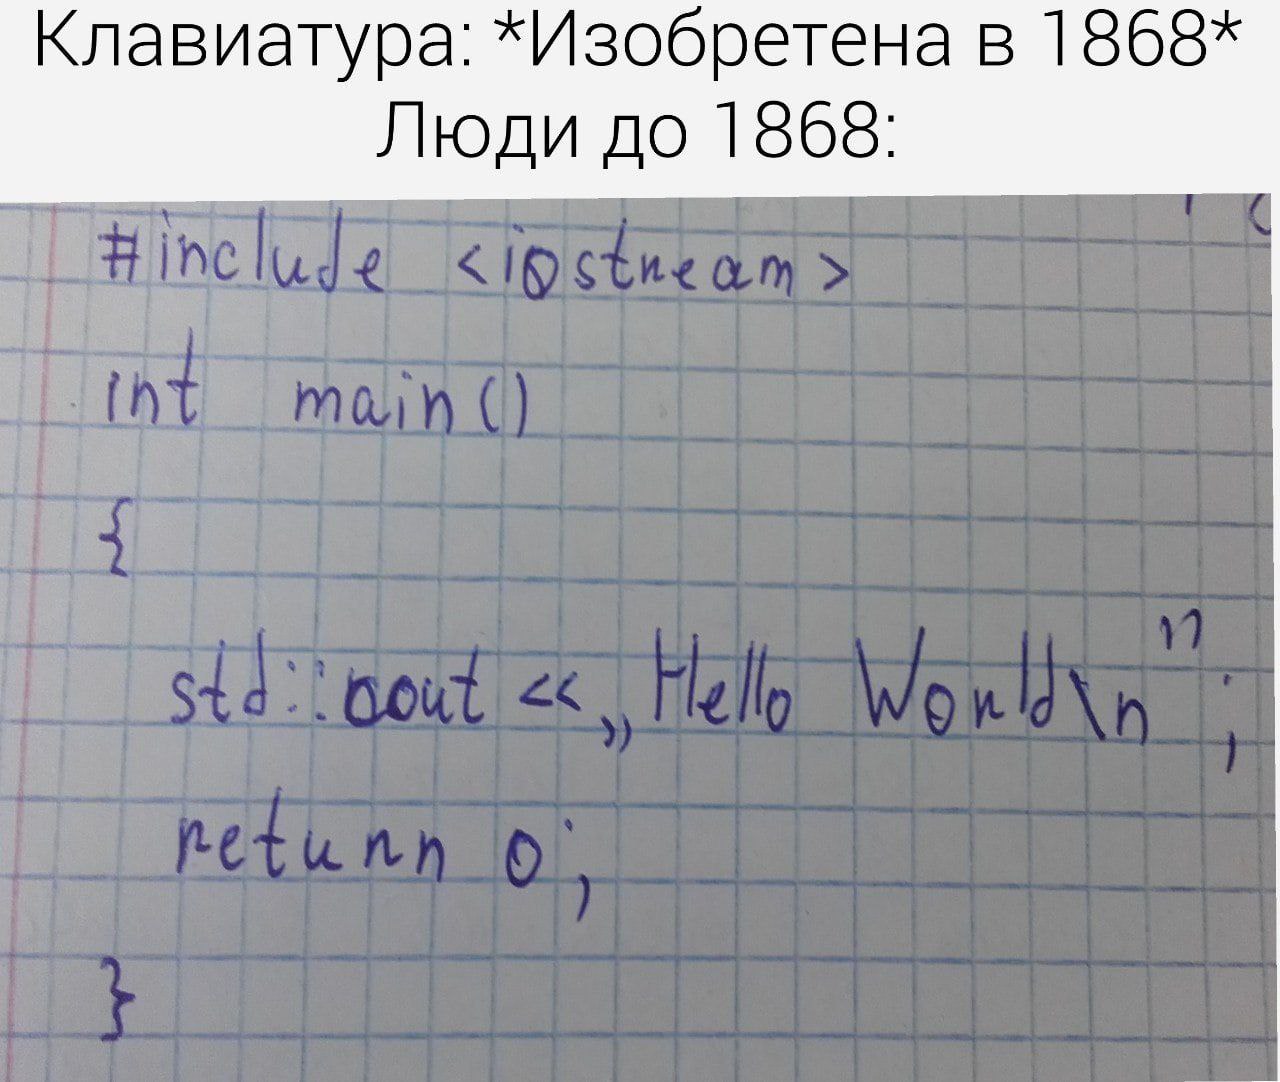 Клавиатура: *Изобретена в 1868*
Люди до 1868:
#include <iostream>
int main()
{
std::cout <<„Hello World\n”;
return 0;
}